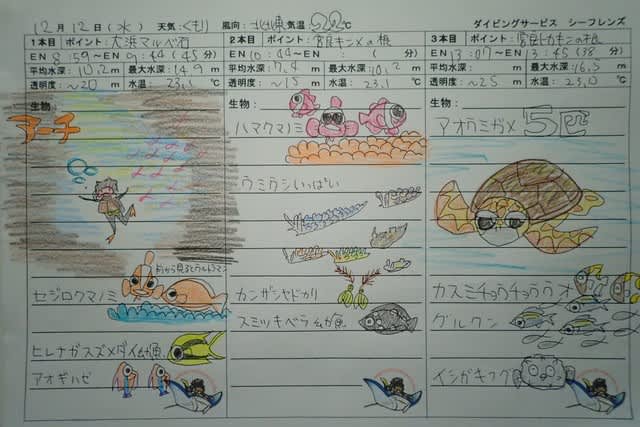 12月12日(水) 天気:くもり 風向:北北東 気温 22℃ ダイビングサービス シーフレンズ
1本目 ポイント:大浜マルベ石
EN 8:59〜EN 9:44(45分)
平均水深:10.2m 最大水深:14.9m
透明度:〜20m 水温:23.1℃
生物:
アーチ
前から見るとウルトラマン
セジロクマノミ
ヒレナガスズメダイ幼魚
アオギハゼ
2本目 ポイント:宮良キンメの根
EN 10:44〜EN : ( 分)
平均水深:7.4m 最大水深:10.2m
透明度:〜15m 水温:23.1℃
生物:
ハマクマノミ
ウミウシいっぱい
カンザシヤドカリ
スミツキベラ幼魚
3本目 ポイント:宮良ヒカキンの根
EN 13:07〜EN 13:45(38分)
平均水深: m 最大水深:16.5m
透明度:〜25m 水温:23.0℃
生物:
アオウミガメ 5匹
カスミチョウチョウウオ
グルクン
イシガキフグ